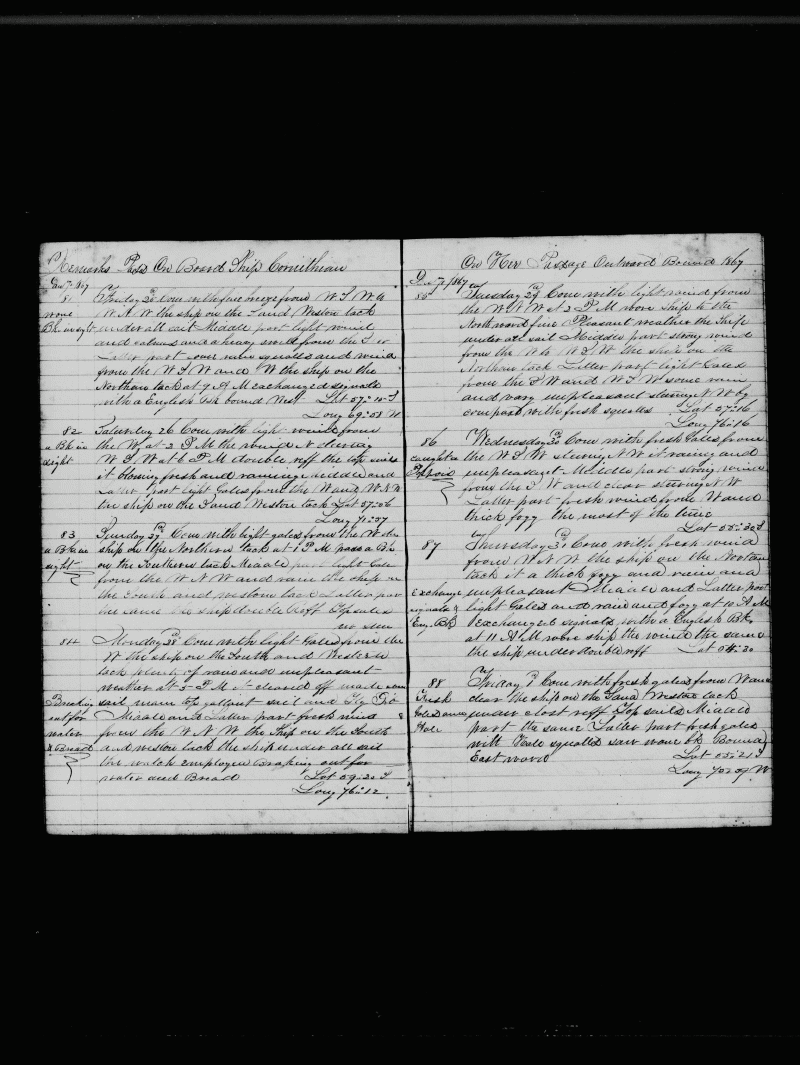 Remarks On Board Ship Corinthean
81 Friday 25 Com with fine breeze from W S W to
none W N W the ship on the S and Western tack
Bk in sight under all sail Middle part light wind
and calms and a heavy swell from the S W
Latter part some squalls and wind
from the W S W and W the ship on the
Northern tack at 9 A M exchanged signals
with a English Bk bound West Lat 57"10 S
Long 69"58 W
82 Saturday 26 Com with light winds from
a Bk in the W at 2 P M the wind
sight W S W at 6 P M double reff the top sails
it blowing fresh and raining Middle and
Latter part light Gales from the W and W N W
the ship on the S and Western tack Lat 57"56
Long 71"57
83 Sunday 27 Com with light gales from the W the
a Bk in ship on the Northern tack at 1 P M pass a Bk
sight on the Southern tack Middle part light Gale
from the W N W and rain the ship on
the South and western tack Latter part
the same the ship double Reff Top sails
no sun
84 Monday 28 Com with light Gales from the
W the ship on the South and Western
tack plenty of rain and unpleasant
weather at 5 P M it cleared off made
Breaking sail main top gallant sail and
out for Middle and Latter part fresh wind
water from the W N W the Ship on the South
& Bread and western tack the ship under all sail
the watch employed Braking out for
water and Bread Lat 59"30 S
Long 76"12
On Her Passage Outward Bound 1867
85 Tuesday 29 Com with light wind from
the W N W at 2 P M wore Ship to the
Northward fine Pleasant weather the Ship
under all sail Middle part strong wind
from the W to W S W the ship on the
Northern tack Latter part light Gales
from the S W and W S W some rain
and very unpleasant steering N W by
compas with fresh squalls Lat 57"16
Long 76"16
86 Wednesday 30 Com with fresh Gales from
caught a the W S W steering N W it raining and
Popois unpleasant Middle part strong wind
from the S W and clear steering N W
Latter part fresh wind from W and
thick fogg the most of the time
Lat 55"30 S
87 Thursday 31 Com with fresh wind
from W N W the ship on the Western
tack it a thick fogg and rain and
Exchange unpleasant Middle and Latter part
signals & light Gales and rain and fogg at 10 A M
Eng Bk exchanged signals with a English Bk
at 11 A M wore ship the wind the same
the ship under double reff Lat 54"30
88 Friday 1 Com with fresh gales from W and
Fresh clear the ship on the S and Western tack
Gales and under close reff Top sails Middle
Hale part the same Latter part fresh gales
with Hale squalls saw none bk Bound
East ward Lat 55"21 S
Long 70"59 W